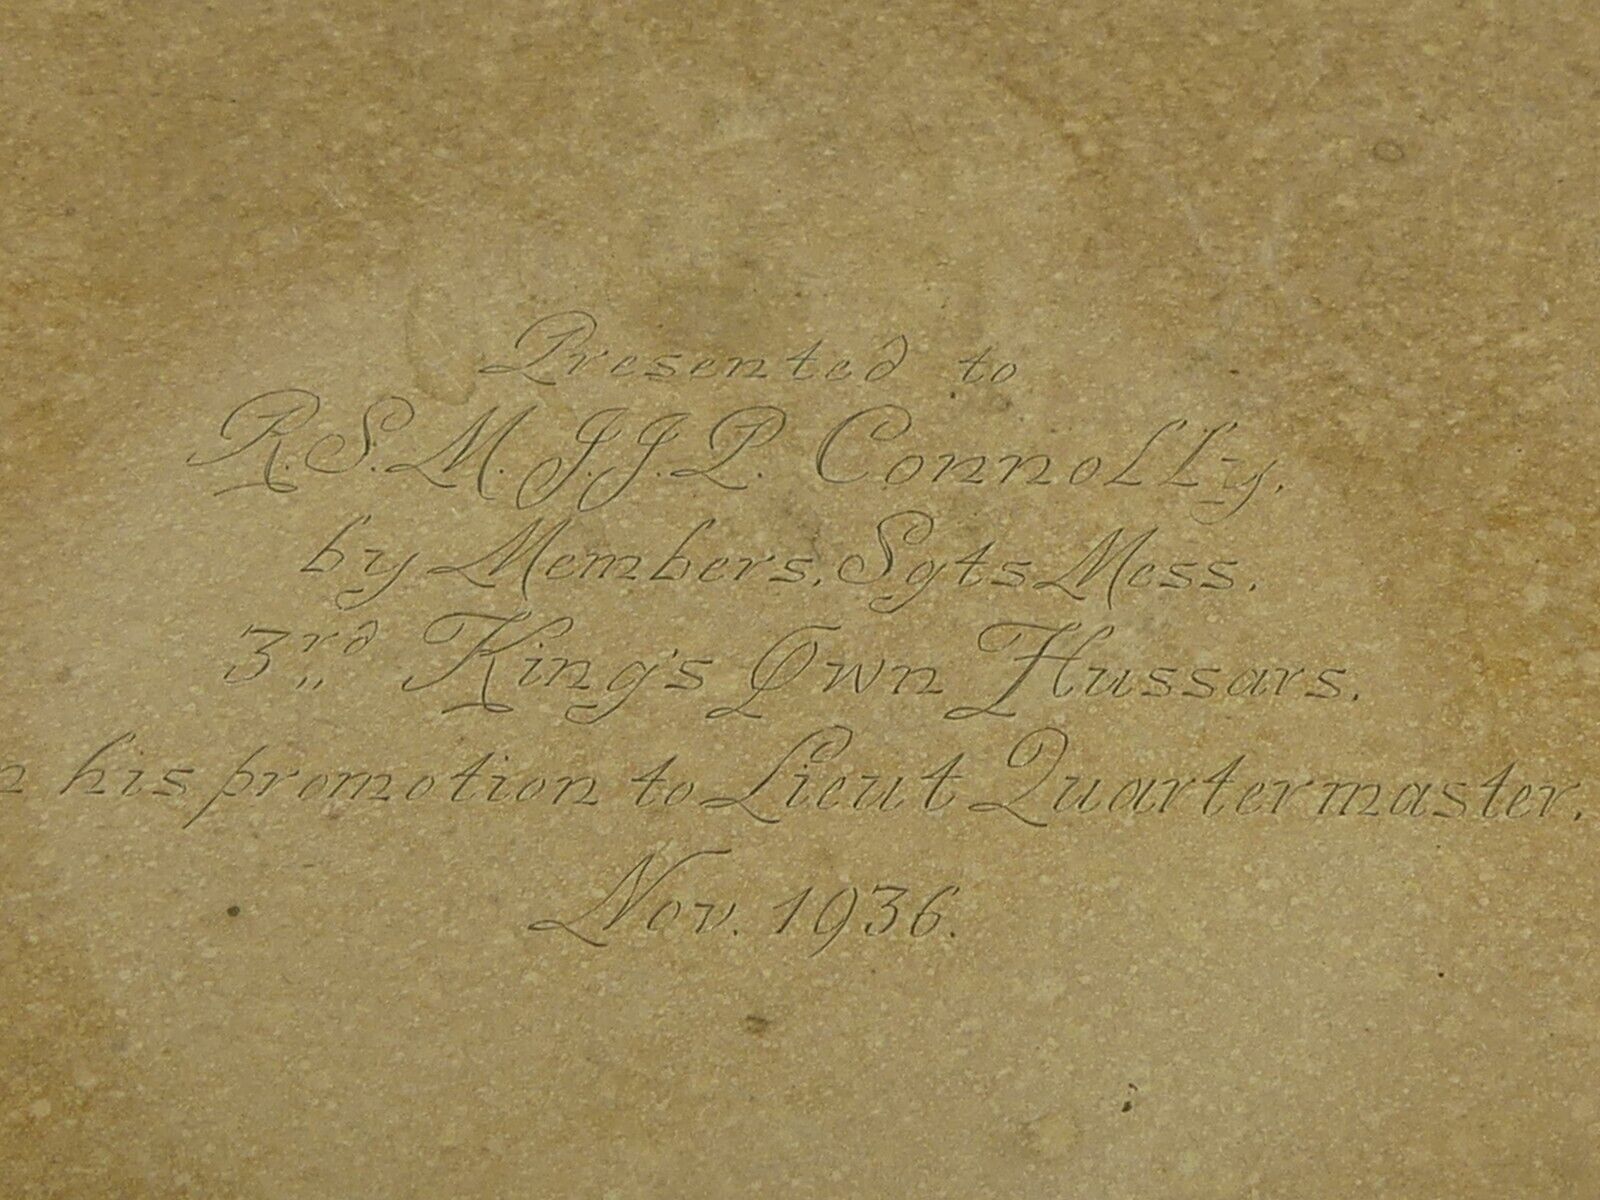 Presented to
R.S.M. J.J.P. Connolly.
by Members. Sgts Mess.
3rd King's Own Hussars.
n his promotion to Lieut Quartermaster.
Nov. 1936.